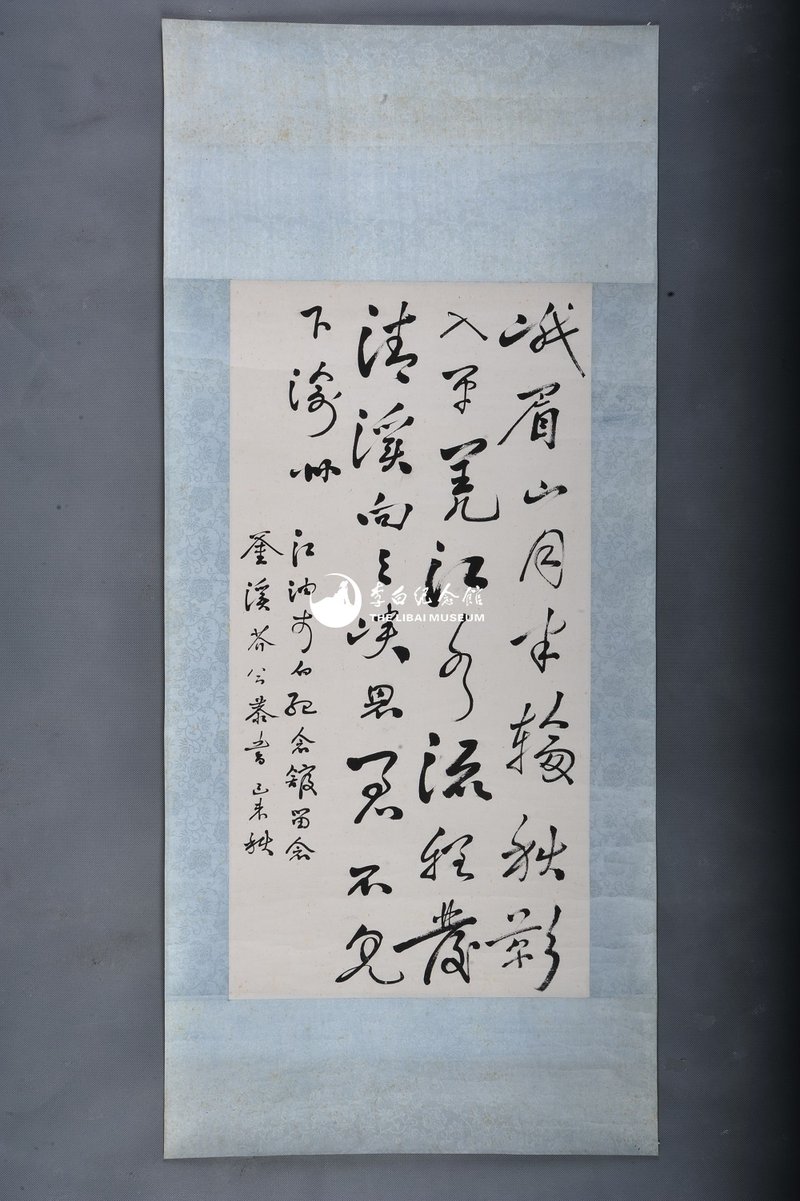 峨眉山月半輪秋影
入平羌江水流發
清溪向三峽思君不見
下渝州
江油李白紀念館留念
釜溪公恭書己未秋
李白纪念馆
THE LIBAI MUSEUM